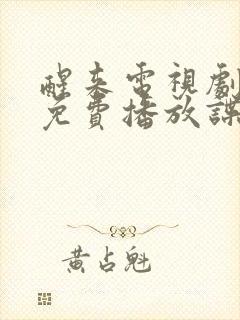 醒来电視劇
免費播放諜
黃占魁